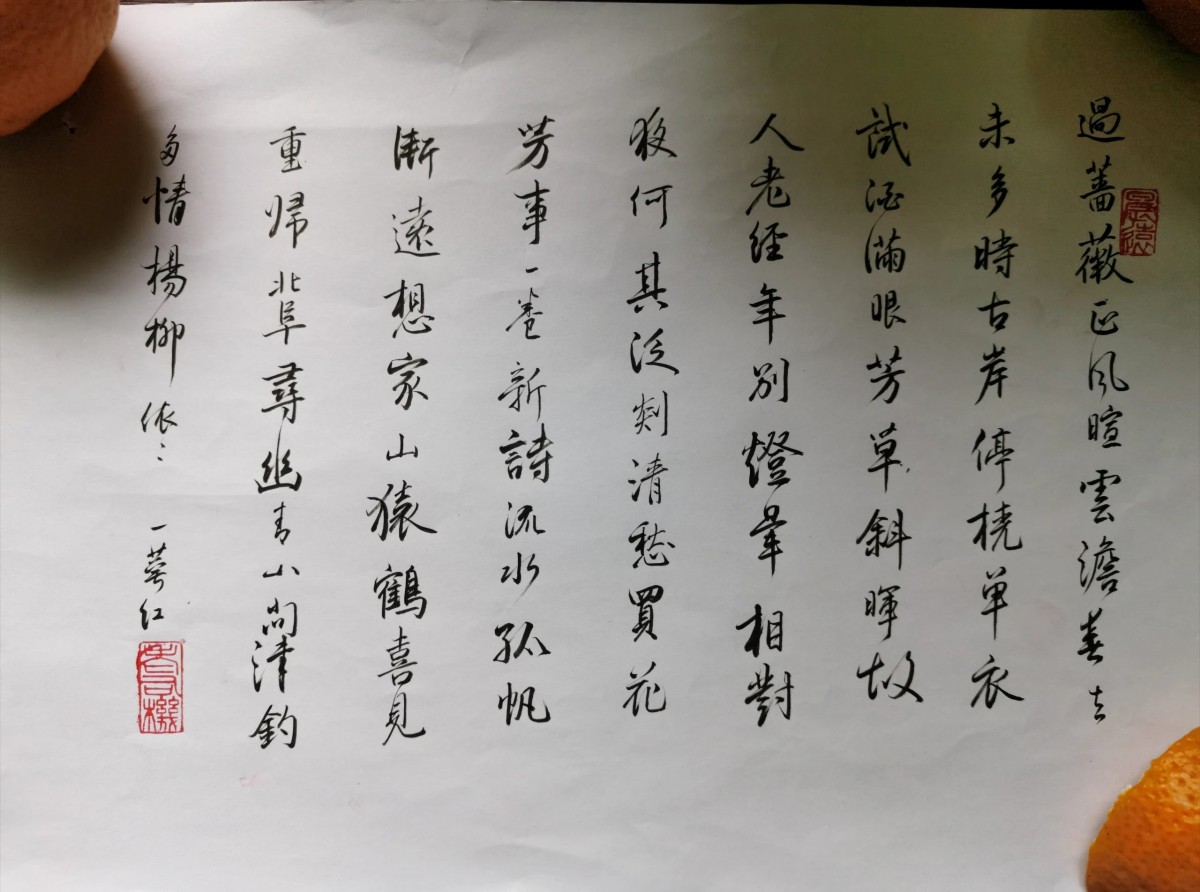 過薔薇正风暄雲澹春去
未多時古岸停橈单衣
試酒滿眼芳草斜暉故
人老經年别燈暈相對
夜何其泛剡清愁買花
芳事一卷新詩流水孤帆
漸遠想家山猿鶴喜見
重帰北阜尋幽青山问津釣
多情楊柳依〻 一萼红